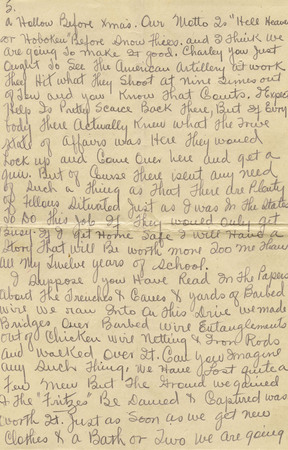 5.
a Hollow Before Xmas. Our Motto Is "Hell Heaven
or Hoboken" Before Snow Flies. and I Think We
are going To Make It good. Charley you Just
Ought To See The American Artillery at work
They Hit what They Shoot at Nine Times out
of Ten and you Know That Counts. I Expect
Help Is Pretty Scarce Back There, But If Every
body There Actually Knew what The True
State of Affairs was Here They would
Lock up and Come Over here and get a
gun. But of Course There isent any need
of Such a Thing as That There are Plenty
of Fellows Situated Just as I was In The States
To Do This Job If They would Only get
Busy. If I get Home Safe I will Have a
Story That will Be worth more Too me Than
All My Twelve years of School.
I Suppose you Have Read In The Papers
About The Trenches & Caves & yards of Barbed
wire. We ran Into On This Drive we made
Bridges Over Barbed wire Entanglements
out of Chicken wire Netting & Iron Rods
and walked Over It. Can you Imagine
any Such Thing. We Have Lost quite a
Few Men But The Ground we gained
& The "Fritzes" we Damed & Captured was
worth It. Just as Soon as we get new
Clothes & a Bath or Two we are going